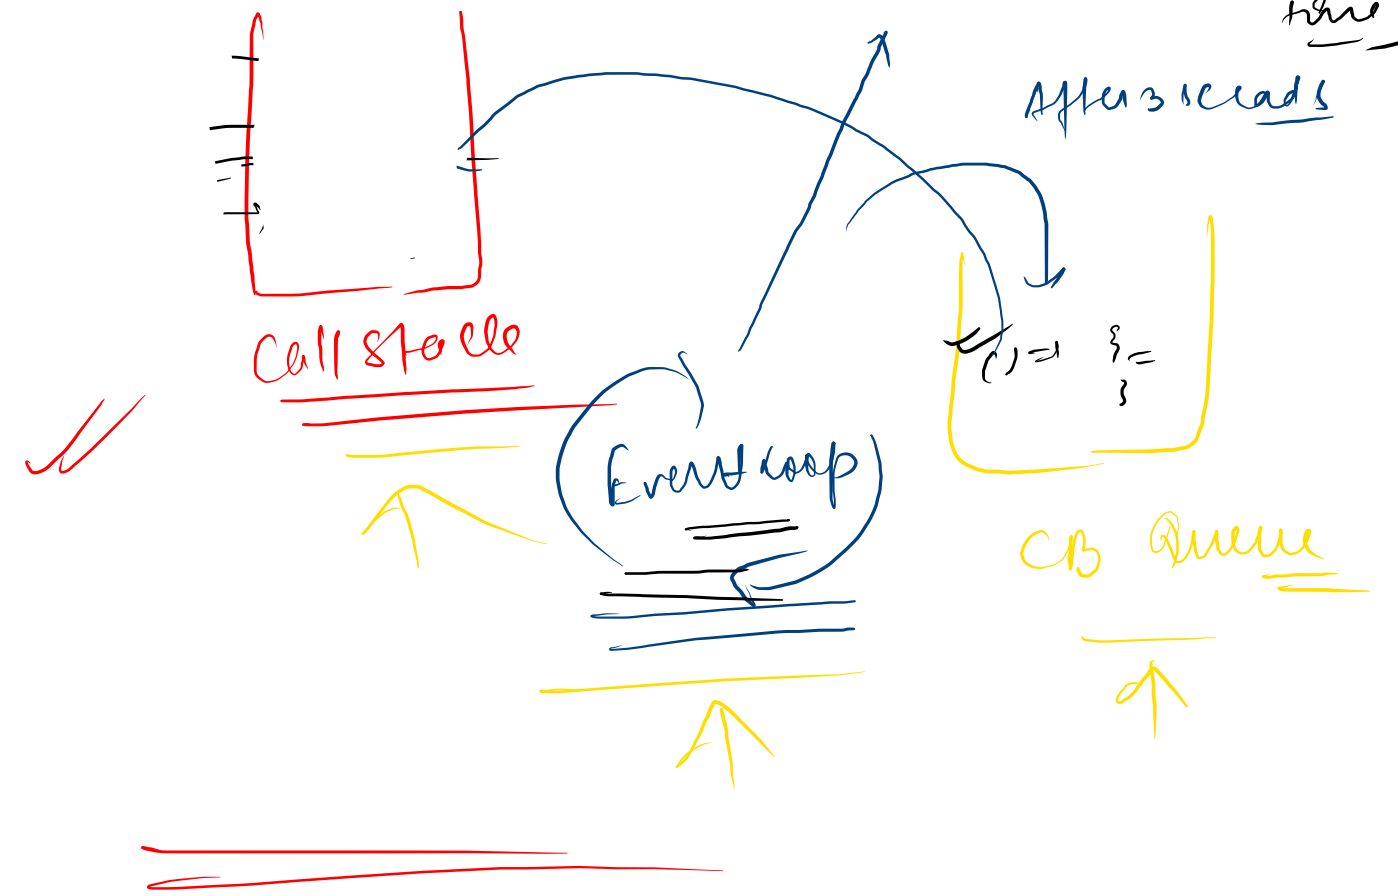 After 3 seconds
() => { =
}
Call Stack
Event Loop
CB Queue